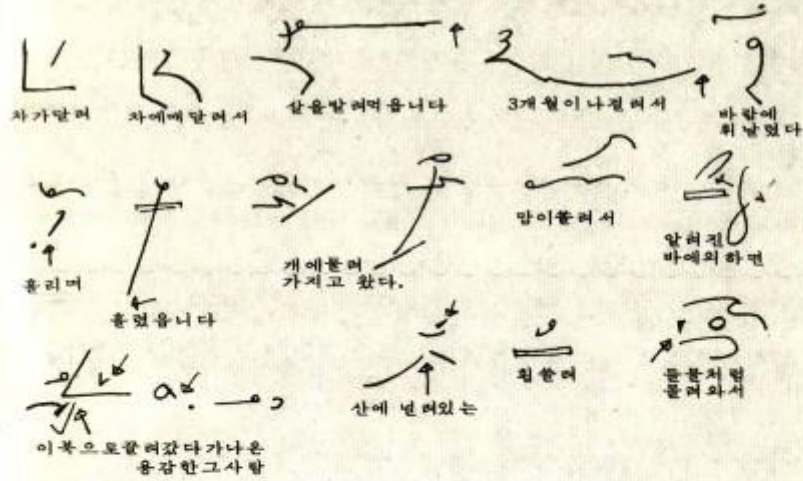 차가달려
차에매달려서
살을발려먹읍니다
3개월이나걸려서
바람에
휘날렸다
흘리며
흘렸읍니다
개에물려
가지고 왔다.
맘이쏠려서
알려진
바에의하면
이북으로끌려갔다가나온
용감한그사람
산에 널려있는
휩쓸려
들불처럼
몰려와서